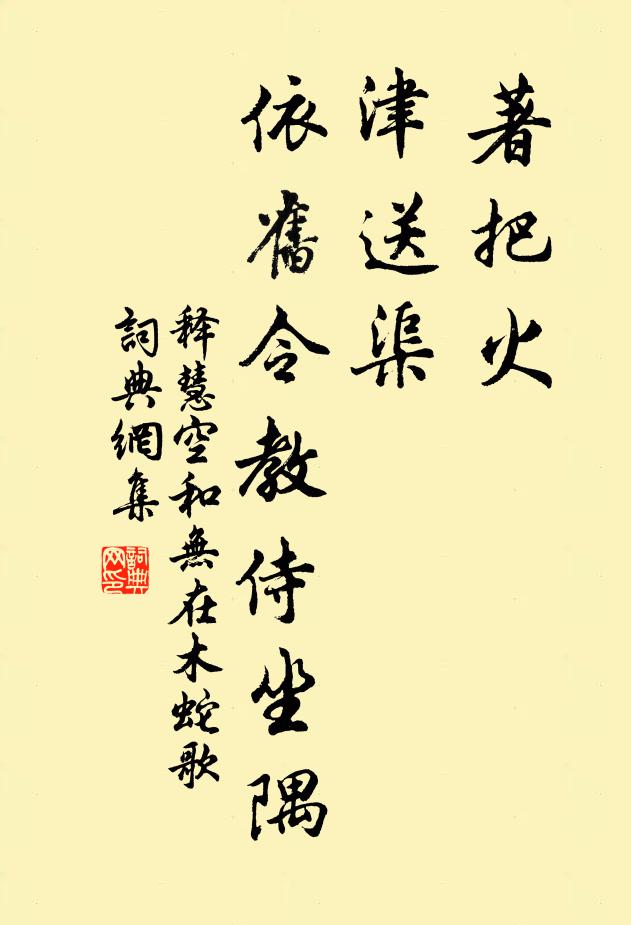 著把火
津送渠
依舊令教侍坐隅
释慧空和無在木蛇歌
詞典網集
詞典网印